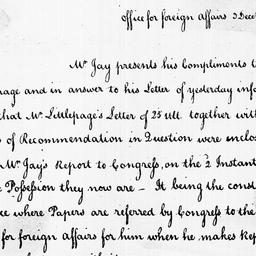 Office for foreign Affairs 3 Dece
Mr Jay presents his Compliments t
age and in answer to his Letter of yesterday info
that Mr Littlepage's Letter of 25 ult. together wit
s of Recommendation in Question were enclo
Mr Jay's Report to Congress, on the 2 Instant
Possession they now are – It being the const
ce where Papers are referred by Congress to the
for foreign Affairs for him when he makes Rep